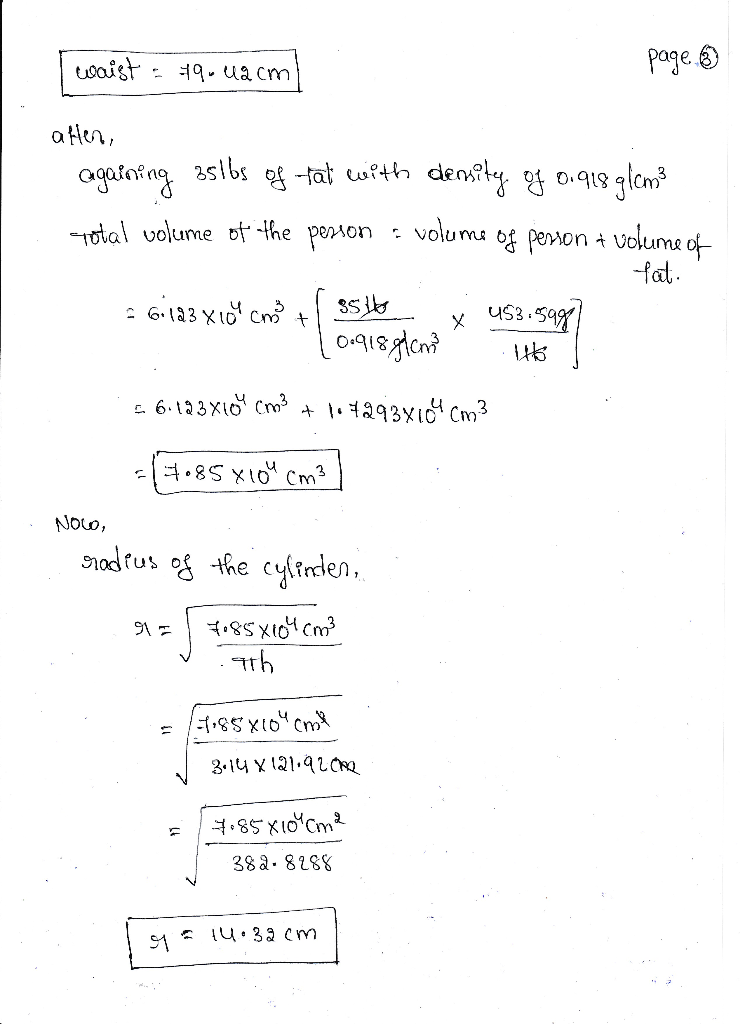 waist = 79.42cm
page. 3
after,
againing 35lbs of fat with density of 0.918 g/cm³
Total volume of the person = volume of person + volume of fat.
= 6.123 X 10⁴ cm³ + [ 35 lb / 0.918 g/cm³ X 453.59g / 1lb ]
= 6.123X10⁴ cm³ + 1.7293X10⁴ cm³
= 7.85 X10⁴ cm³
Now,
radius of the cylinder,
r = √ 7.85X10⁴ cm³ / πh
= √ 7.85 X10⁴ cm² / 3.14 X 121.92 cm
= √ 7.85 X10⁴ cm² / 382.8288
r = 14.32 cm